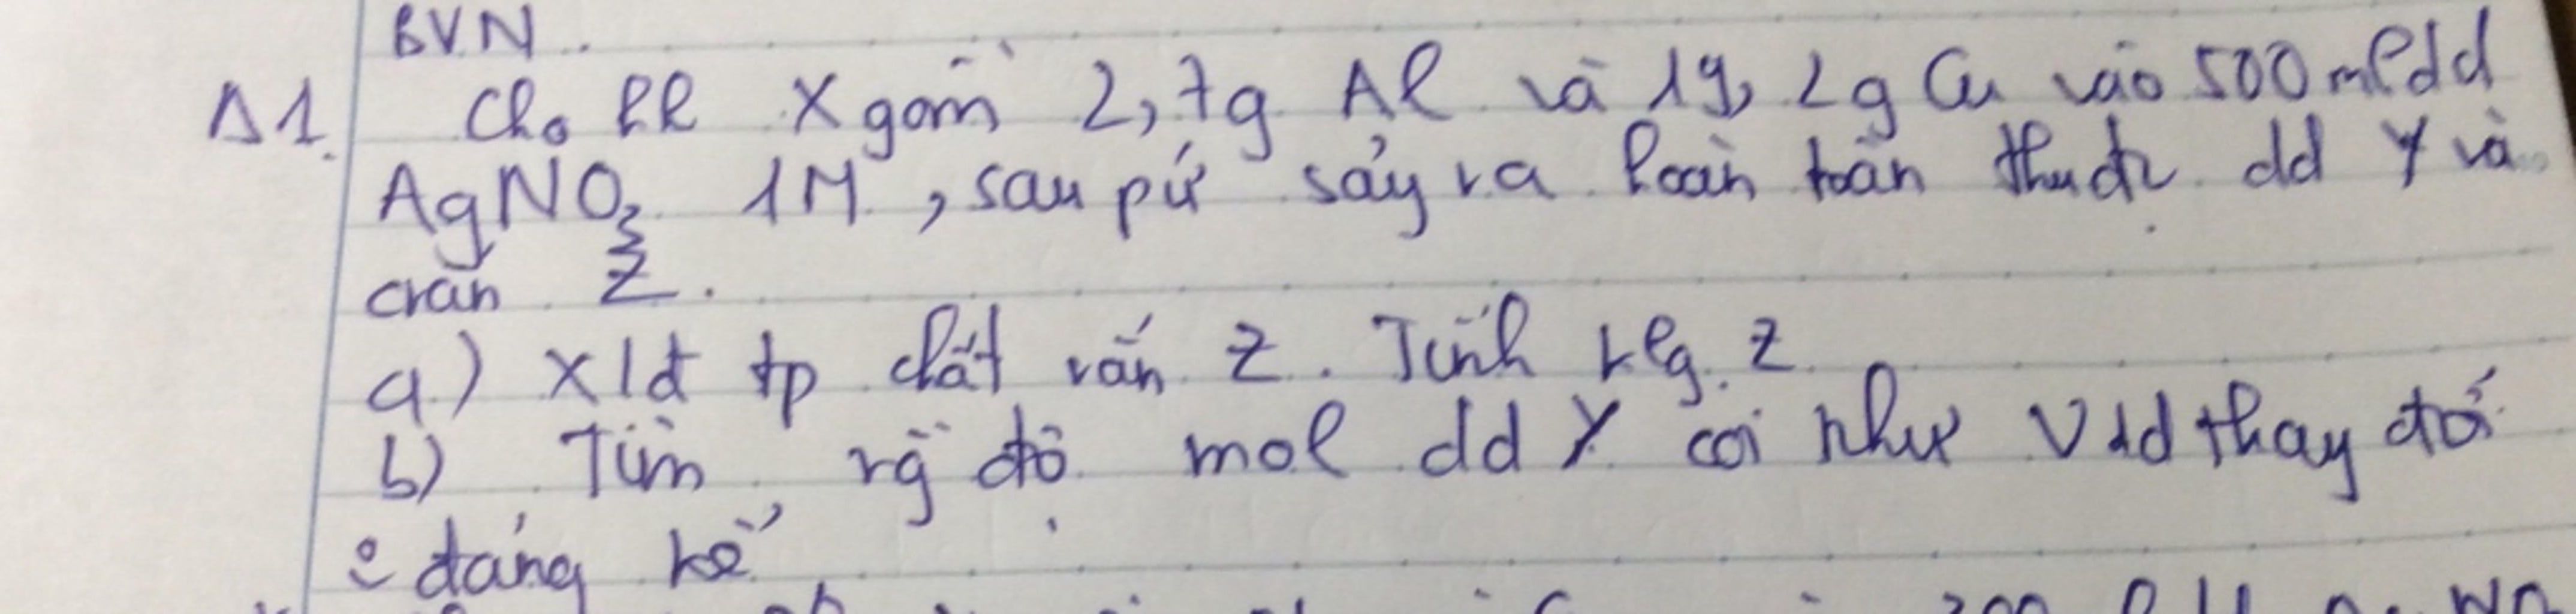 BVN.
Δ1. Cho hh X gồm 2,7g Al và 19,2g Cu vào 500 ml dd
AgNO3 1M, sau pứ sảy ra hoàn toàn thu đc dd Y và
crắn Z.
a) Xđ tp chất rắn Z. Tính klg Z
b) Tìm ng độ mol dd Y coi như Vdd thay đổi
đáng kể